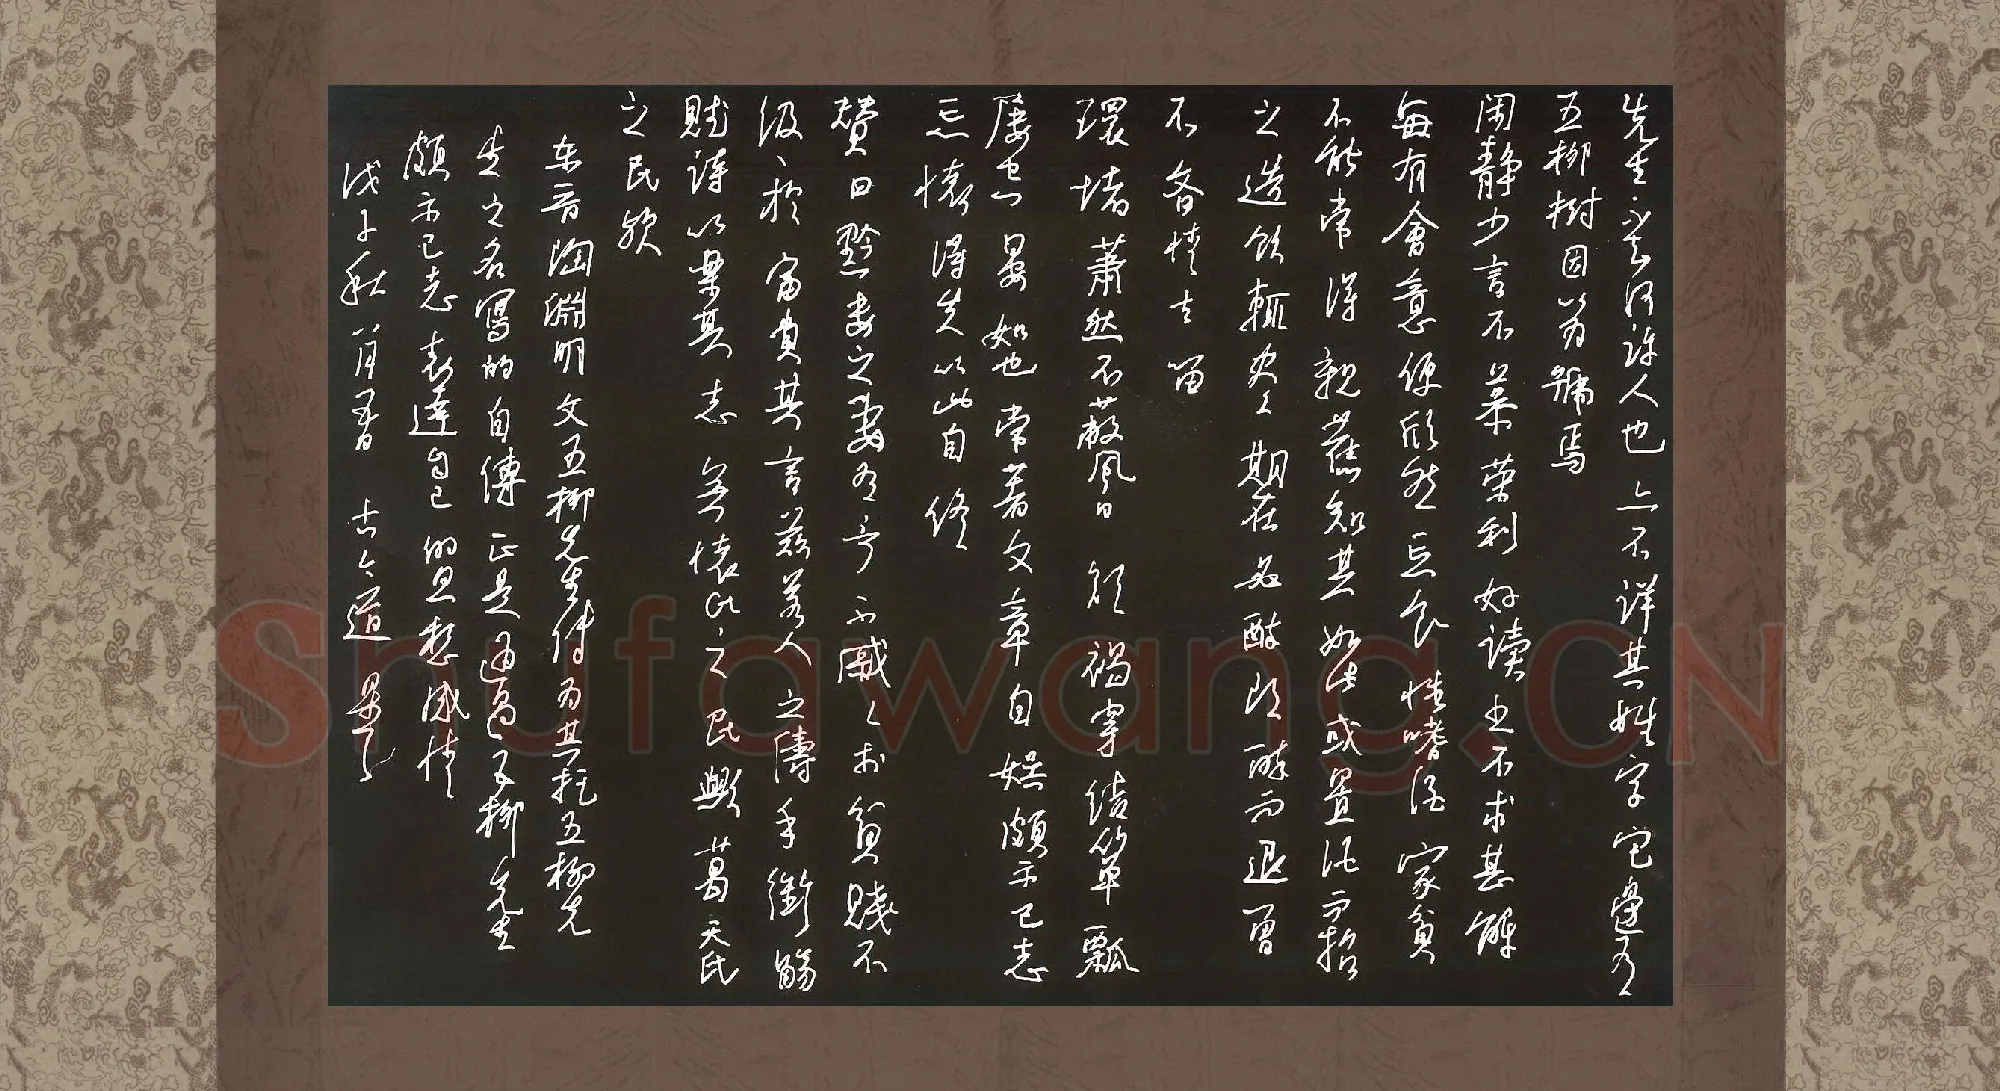 先生不知何许人也亦不详其姓字宅邊有
五柳树因以为號焉
闲静少言不慕荣利好读书不求甚解
每有會意便欣然忘食性嗜酒家貧
不能常得親舊知其如此或置酒而招
之造饮輒尽期在必醉既醉而退曾
不吝情去留
環堵蕭然不蔽风日短褐穿结箪瓢
屡空晏如也常著文章自娱頗示己志
忘懷得失以此自终
赞曰黔娄之妻有言不戚戚於貧賤不
汲汲於富贵其言兹若人之儔乎銜觴
賦诗以樂其志無懷氏之民歟葛天氏
之民欤
东晋陶渊明文五柳先生传为其托五柳先
生之名寫的自傳正是通過五柳先生
頗示己志表達自己的思想感情
戊子秋月書 古今道
Shufawang.CN